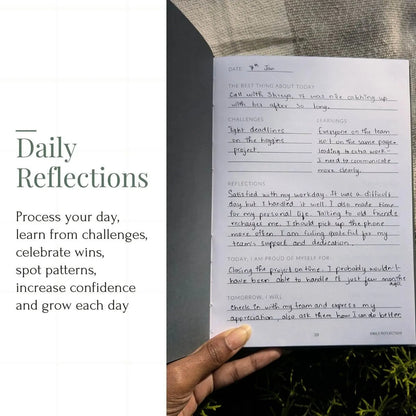 Daily
Reflections
Process your day,
learn from challenges,
celebrate wins,
spot patterns,
increase confidence
and grow each day
DATE 7th Jan
THE BEST THING ABOUT TODAY
Call with Shreya, it was nice catching up
with her after so long.
CHALLENGES
Tight deadlines
on the Higgins
project.
LEARNINGS
Everyone on the team
isn't on the same page
leading to extra work-
I need to communicate
more clearly.
REFLECTIONS
Satisfied with my workday. It was a difficult
day but I handled it well. I also made time
for my personal life. Talking to old friends
recharges me. I should pick up the phone
more often. I am feeling grateful for my
team's support and dedication.
TODAY, I AM PROUD OF MYSELF FOR
Closing the project on time. I probably wouldn't
have been able to handle it just few months
ago.
TOMORROW, I WILL
Check in with my team and express my
appreciation, also ask them how I can do better.
DAILY REFLECTION